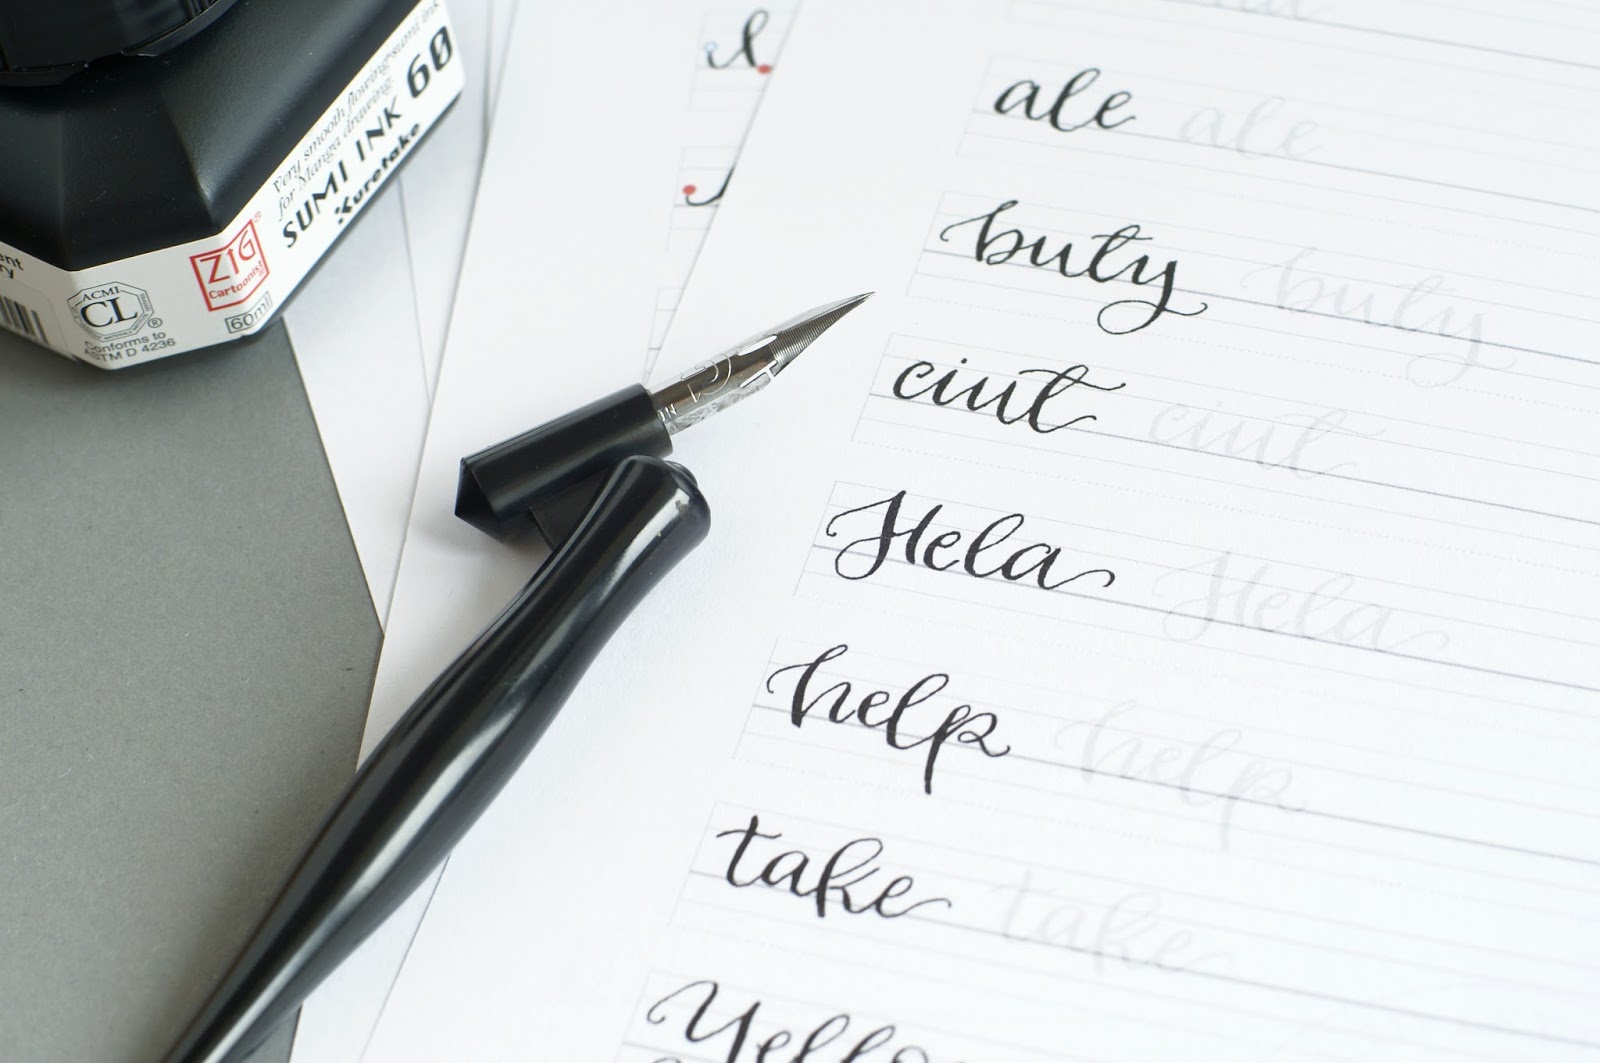 Very smooth flowing sumi ink
for Manga drawing.
SUMI INK 60
Kuretake
ZIG
Cartoonist
60ml
ACMI
CL
Conforms to
ASTM D 4236
ale ale
buty buty
ciut ciut
Hela Hela
help help
take take